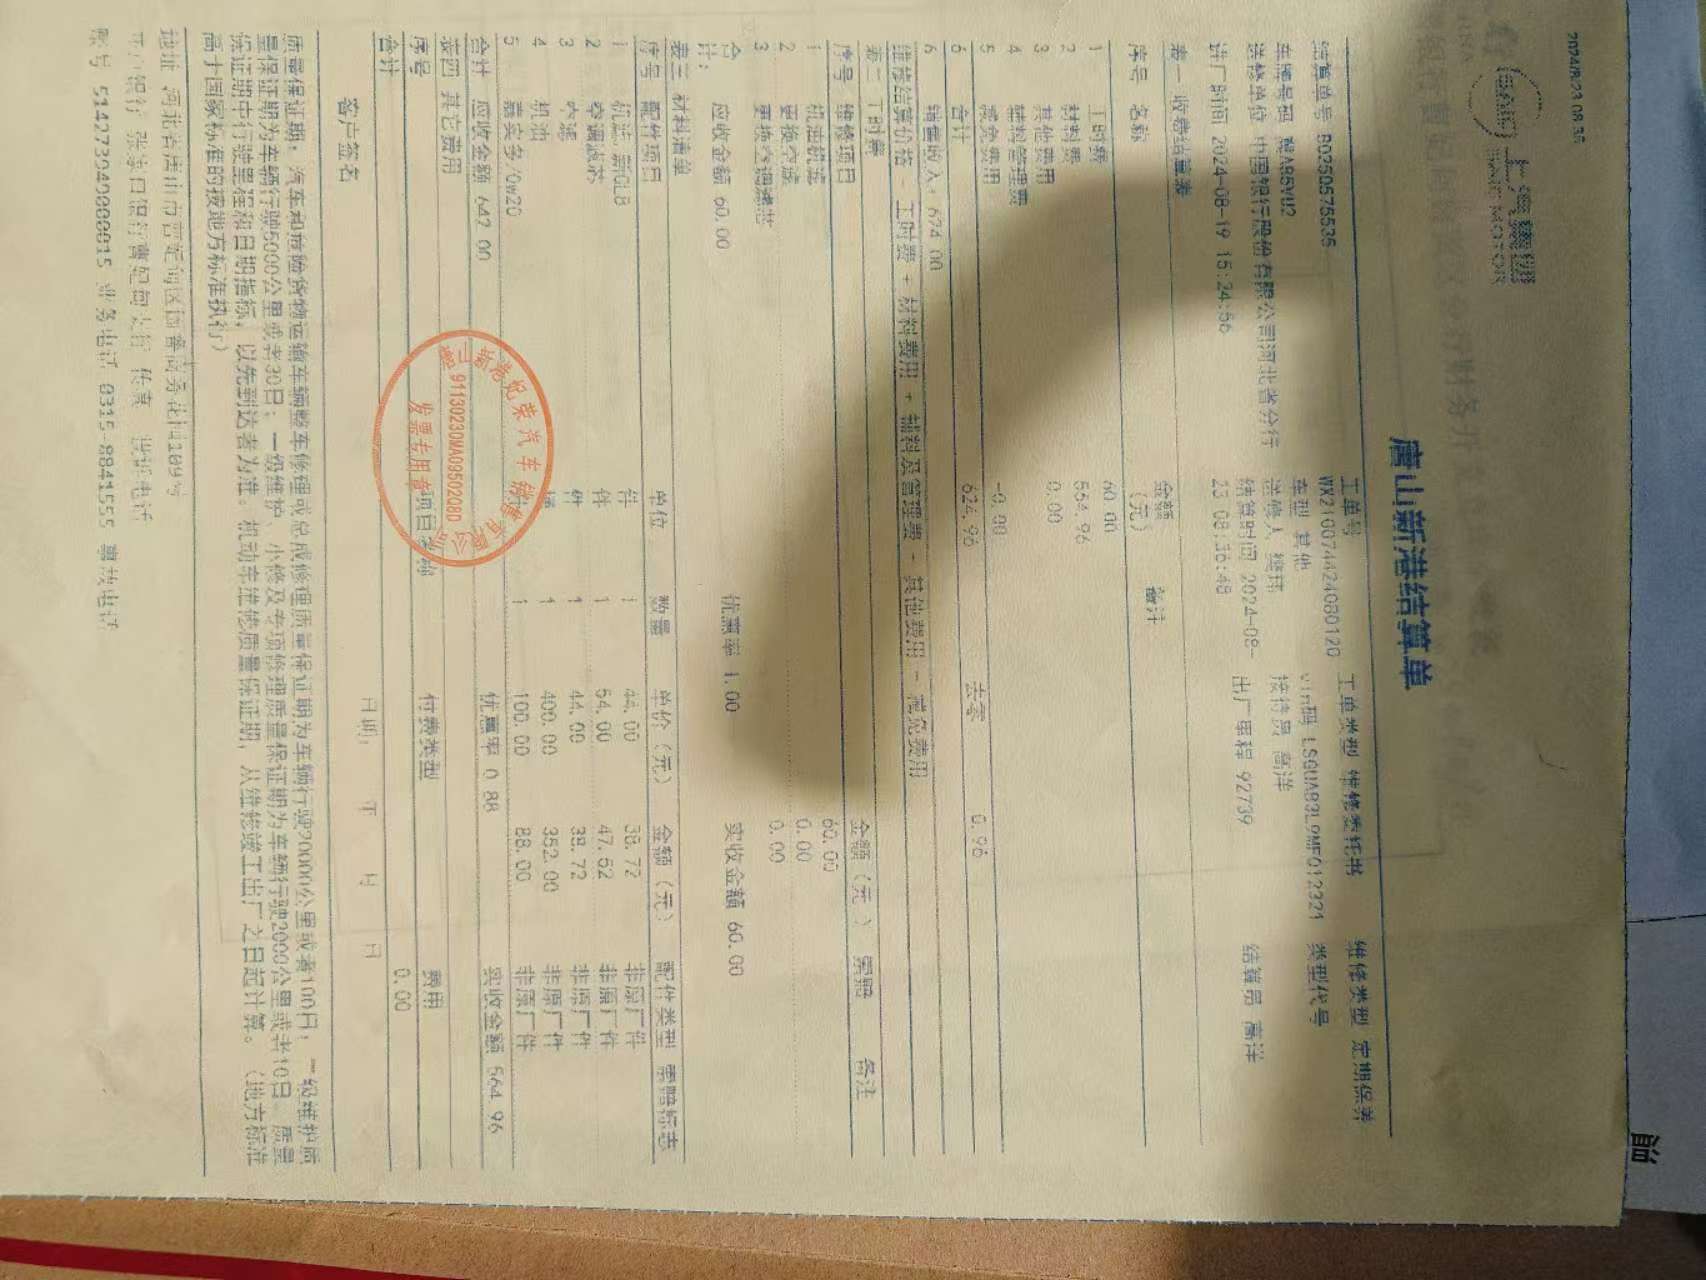 2024/8/23 08:36
上汽大通
唐山新港结算单
结算单号 B0250575535 工单号 WX210074424080120 工单类型 维修委托书 维修类型 定期保养
车牌号码 车型 其他 vin码 LSQUAB3L9MF012321 类型代号
送修单位 中国银行股份有限公司河北省分行 送修人 接待员 高洋
进厂时间 2024-08-19 15:24:56 结算时间 2024-08-23 08:36:48 出厂里程 92739 结算员 高洋
表一 收费结算表
序号 名称 金额(元) 备注
1 工时费 60.00
2 材料费 564.96
3 其他费用 0.00
4 辅料管理费
5 减免费用 -0.00
6 合计 624.96 去零 0.96
6 销售收入: 624.00
维修结算价格 = 工时费 + 材料费用 + 辅料及管理费 + 其他费用 - 减免费用
表二 工时费
序号 维修项目 金额(元) 索赔 备注
1 机油机滤 60.00
2 更换空滤 0.00
3 更换空调滤芯 0.00
合计: 应收金额 60.00 优惠率 1.00 实收金额 60.00
表三 材料清单
序号 配件项目 单位 数量 单价(元) 金额(元) 配件类型 索赔标志
1 机滤/新GL8 件 1 44.00 38.72 非原厂件
2 空调滤芯 件 1 54.00 47.52 非原厂件
3 空滤 件 1 44.00 38.72 非原厂件
4 机油 桶 1 400.00 352.00 非原厂件
5 嘉实多/0w20 1 100.00 88.00 非原厂件
合计 应收金额 642.00 优惠率 0.88 实收金额 564.96
表四 其它费用
序号 项目名称 付费类型 费用
合计 0.00
唐山新港妃荣汽车销售有限公司
91130230MA09502080
发票专用章
客户签名 日期: 年 月 日
质量保证期: 汽车和危险货物运输车辆整车修理或总成修理质量保证期为车辆行驶20000公里或者100日; 二级维护质
量保证期为车辆行驶5000公里或者30日; 一级维护、小修及专项修理质量保证期为车辆行驶2000公里或者10日。质量
保证期中行驶里程和日期指标, 以先到达者为准。机动车维修质量保证期, 从维修竣工出厂之日起计算。(地方标准
高于国家标准的按地方标准执行)
地址 河北省唐山市曹妃甸区
开户银行 张家口银行曹妃甸支行 传真
账号 业务电话 0315-8841555